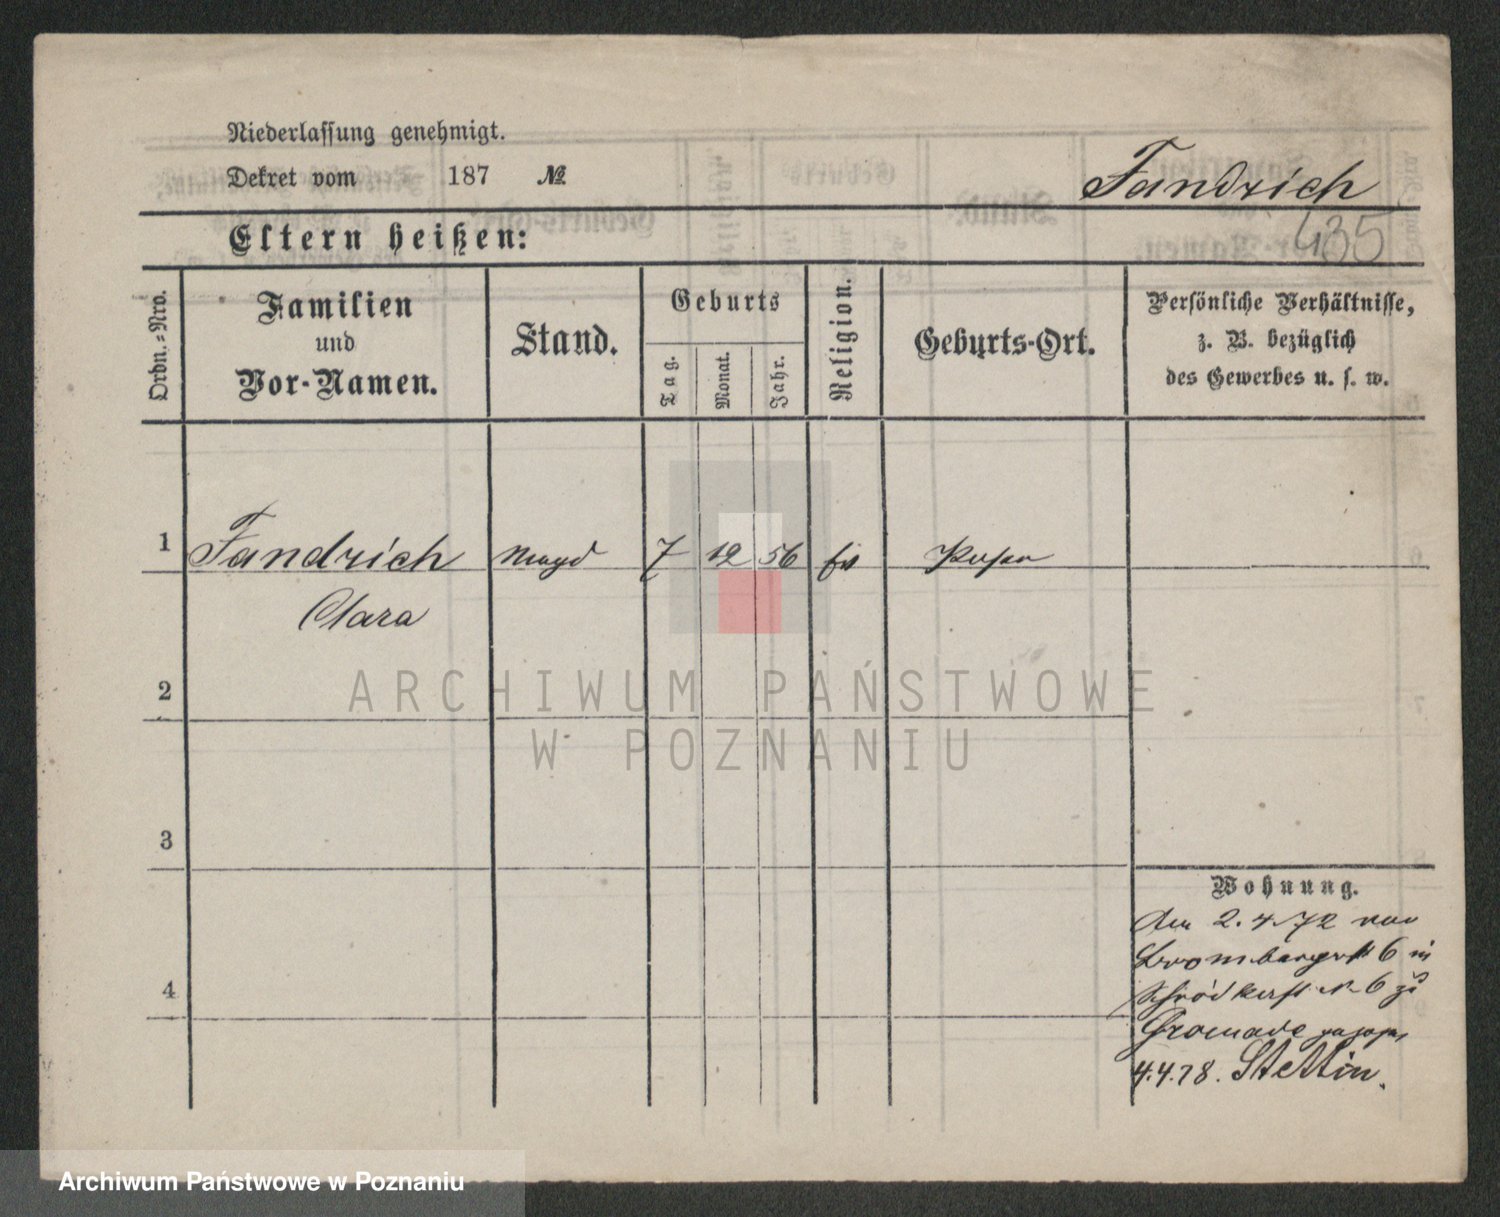 Niederlassung genehmigt.
Dekret vom 187 №
Fandrich
435
Eltern heißen:
Ordn.-Nro.
Familien
und
Vor-Namen.
Stand.
Geburts
Tag.
Monat.
Jahr.
Religion.
Geburts-Ort.
Persönliche Verhältnisse,
z. B. bezüglich
des Gewerbes u. s. w.
1 Fandrich Magd 7 12 56
Clara
2
3
4
Wohnung.
2. 4. 72
6 in
6 zu
4.4.78. Stettin.
ARCHIWUM PAŃSTWOWE
W POZNANIU
Archiwum Państwowe w Poznaniu